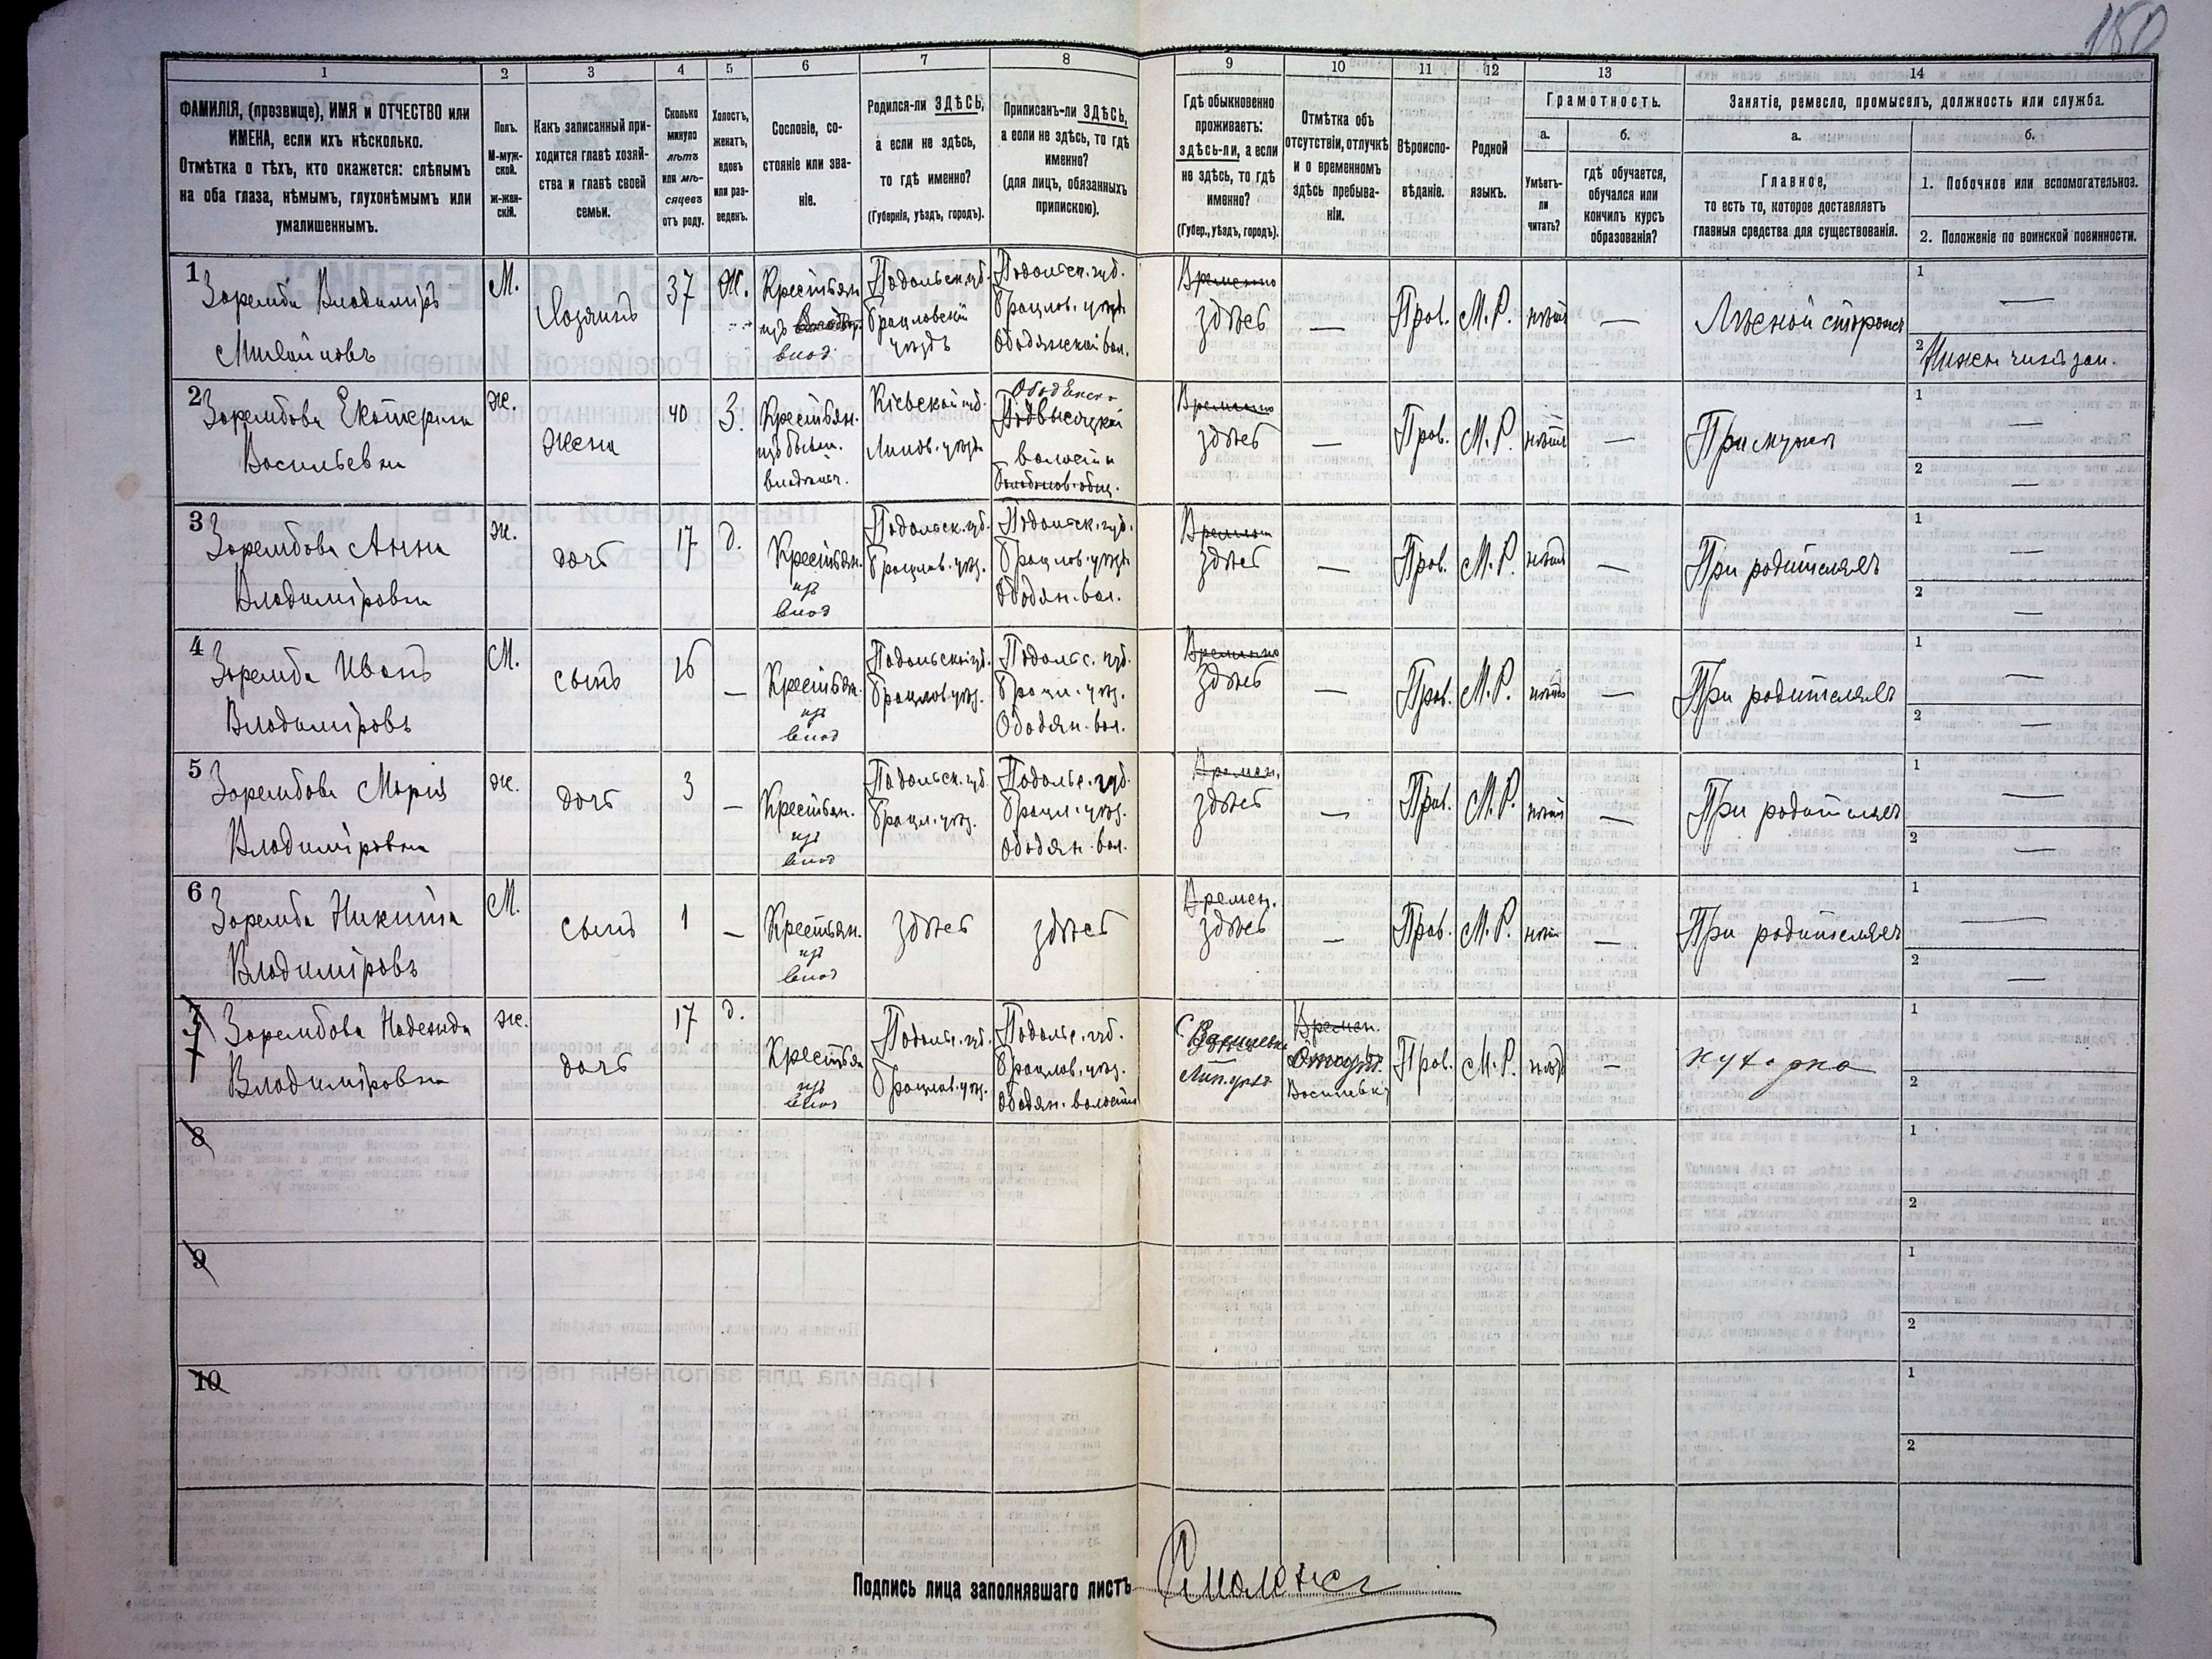 150
1
2
3
4
5
6
7
8
9
10
11
12
13
14
ФАМИЛІЯ, (прозвище), ИМЯ и ОТЧЕСТВО или
ИМЕНА, если ихъ нѣсколько.
Отмѣтка о тѣхъ, кто окажется: слѣпымъ
на оба глаза, нѣмымъ, глухонѣмымъ или
умалишеннымъ.
Полъ.
М-муж-
ской.
ж-жен-
скій.
Какъ записанный при-
ходится главѣ хозяй-
ства и главѣ своей
семьи.
Сколько
минуло
лѣтъ
или мѣ-
сяцевъ
отъ роду.
Холостъ,
женатъ,
вдовъ
или раз-
веденъ.
Сословіе, со-
стояніе или зва-
ніе.
Родился-ли ЗДѢСЬ,
а если не здѣсь,
то гдѣ именно?
(Губернія, уѣздъ, городъ).
Приписанъ-ли ЗДѢСЬ,
а если не здѣсь, то гдѣ
именно?
(для лицъ, обязанныхъ
припискою).
Гдѣ обыкновенно
проживаетъ:
здѣсь-ли, а если
не здѣсь, то гдѣ
именно?
(Губер., уѣздъ, городъ).
Отмѣтка объ
отсутствіи, отлучкѣ
и о временномъ
здѣсь пребыва-
ніи.
Вѣроиспо-
вѣданіе.
Родной
языкъ.
Грамотность.
а.
Умѣетъ-
ли
читать?
б.
гдѣ обучается,
обучался или
кончилъ курсъ
образованія?
Занятіе, ремесло, промыселъ, должность или служба.
а.
Главное,
то есть то, которое доставляетъ
главныя средства для существованія.
б.
1. Побочное или вспомогательное.
2. Положеніе по воинской повинности.
1
Заремба Владиміръ
Михайловъ
М.
Хозяинъ
37
Ж.
Крестьян
изъ
влад.
Подольск. губ.
Брацловскій
уѣздъ
Подольск. губ.
Брацлов. уѣзд.
Ободянской вол.
Временно
здѣсь
—
Прав.
М.Р.
нѣтъ
—
Лѣсной сторожъ
1
—
2
Нижн. чинъ зап.
2
Зарембова Екатерина
Васильевна
ж.
жена
40
З.
Крестьян.
изъ бывш.
владѣльч.
Кіевской губ.
Липов. уѣзда
волости
Временно
здѣсь
—
Прав.
М.Р.
нѣтъ
—
При мужѣ
1
—
2
—
3
Зарембова Анна
Владиміровна
ж.
дочь
17
д.
Крестьян.
изъ
влад
Подольск. губ.
Брацлов. уѣз.
Подольск. губ.
Брацлов. уѣзда
Ободян. вол.
здѣсь
—
Прав.
М.Р.
нѣтъ
—
При родителяхъ
1
—
2
—
4
Заремба Иванъ
Владиміровъ
М.
сынъ
16
—
Крестьян.
изъ
влад
Подольской губ.
Брацлов. уѣз.
Подольс. губ.
Брацл. уѣз.
Ободян. вол.
Временно
здѣсь
—
Прав.
М.Р.
нѣтъ
—
При родителяхъ
1
—
2
—
5
Зарембова Марія
Владиміровна
ж.
дочь
3
—
Крестьян.
изъ
влад
Подольск. губ.
Брацл. уѣз.
Подольс. губ.
Брацл. уѣз.
Ободян. вол.
Времен.
здѣсь
—
Прав.
М.Р.
нѣтъ
—
При родителяхъ
1
—
2
—
6
Заремба Никита
Владиміровъ
М.
сынъ
1
—
Крестьян.
изъ
влад
здѣсь
здѣсь
Времен.
здѣсь
—
Прав.
М.Р.
нѣтъ
—
При родителяхъ
1
—
2
—
7
Зарембова Надежда
Владиміровна
ж.
дочь
17
д.
Крестьян
изъ
влад
Подольс. губ.
Брацлов. уѣз.
Подольс. губ.
Брацлов. уѣз.
Ободян. волости
Лип. уѣзд.
Времен.
Прав.
М.Р.
нѣтъ
—
кухарка
1
2
8
1
2
9
1
2
10
1
2
Подпись лица заполнявшаго листъ